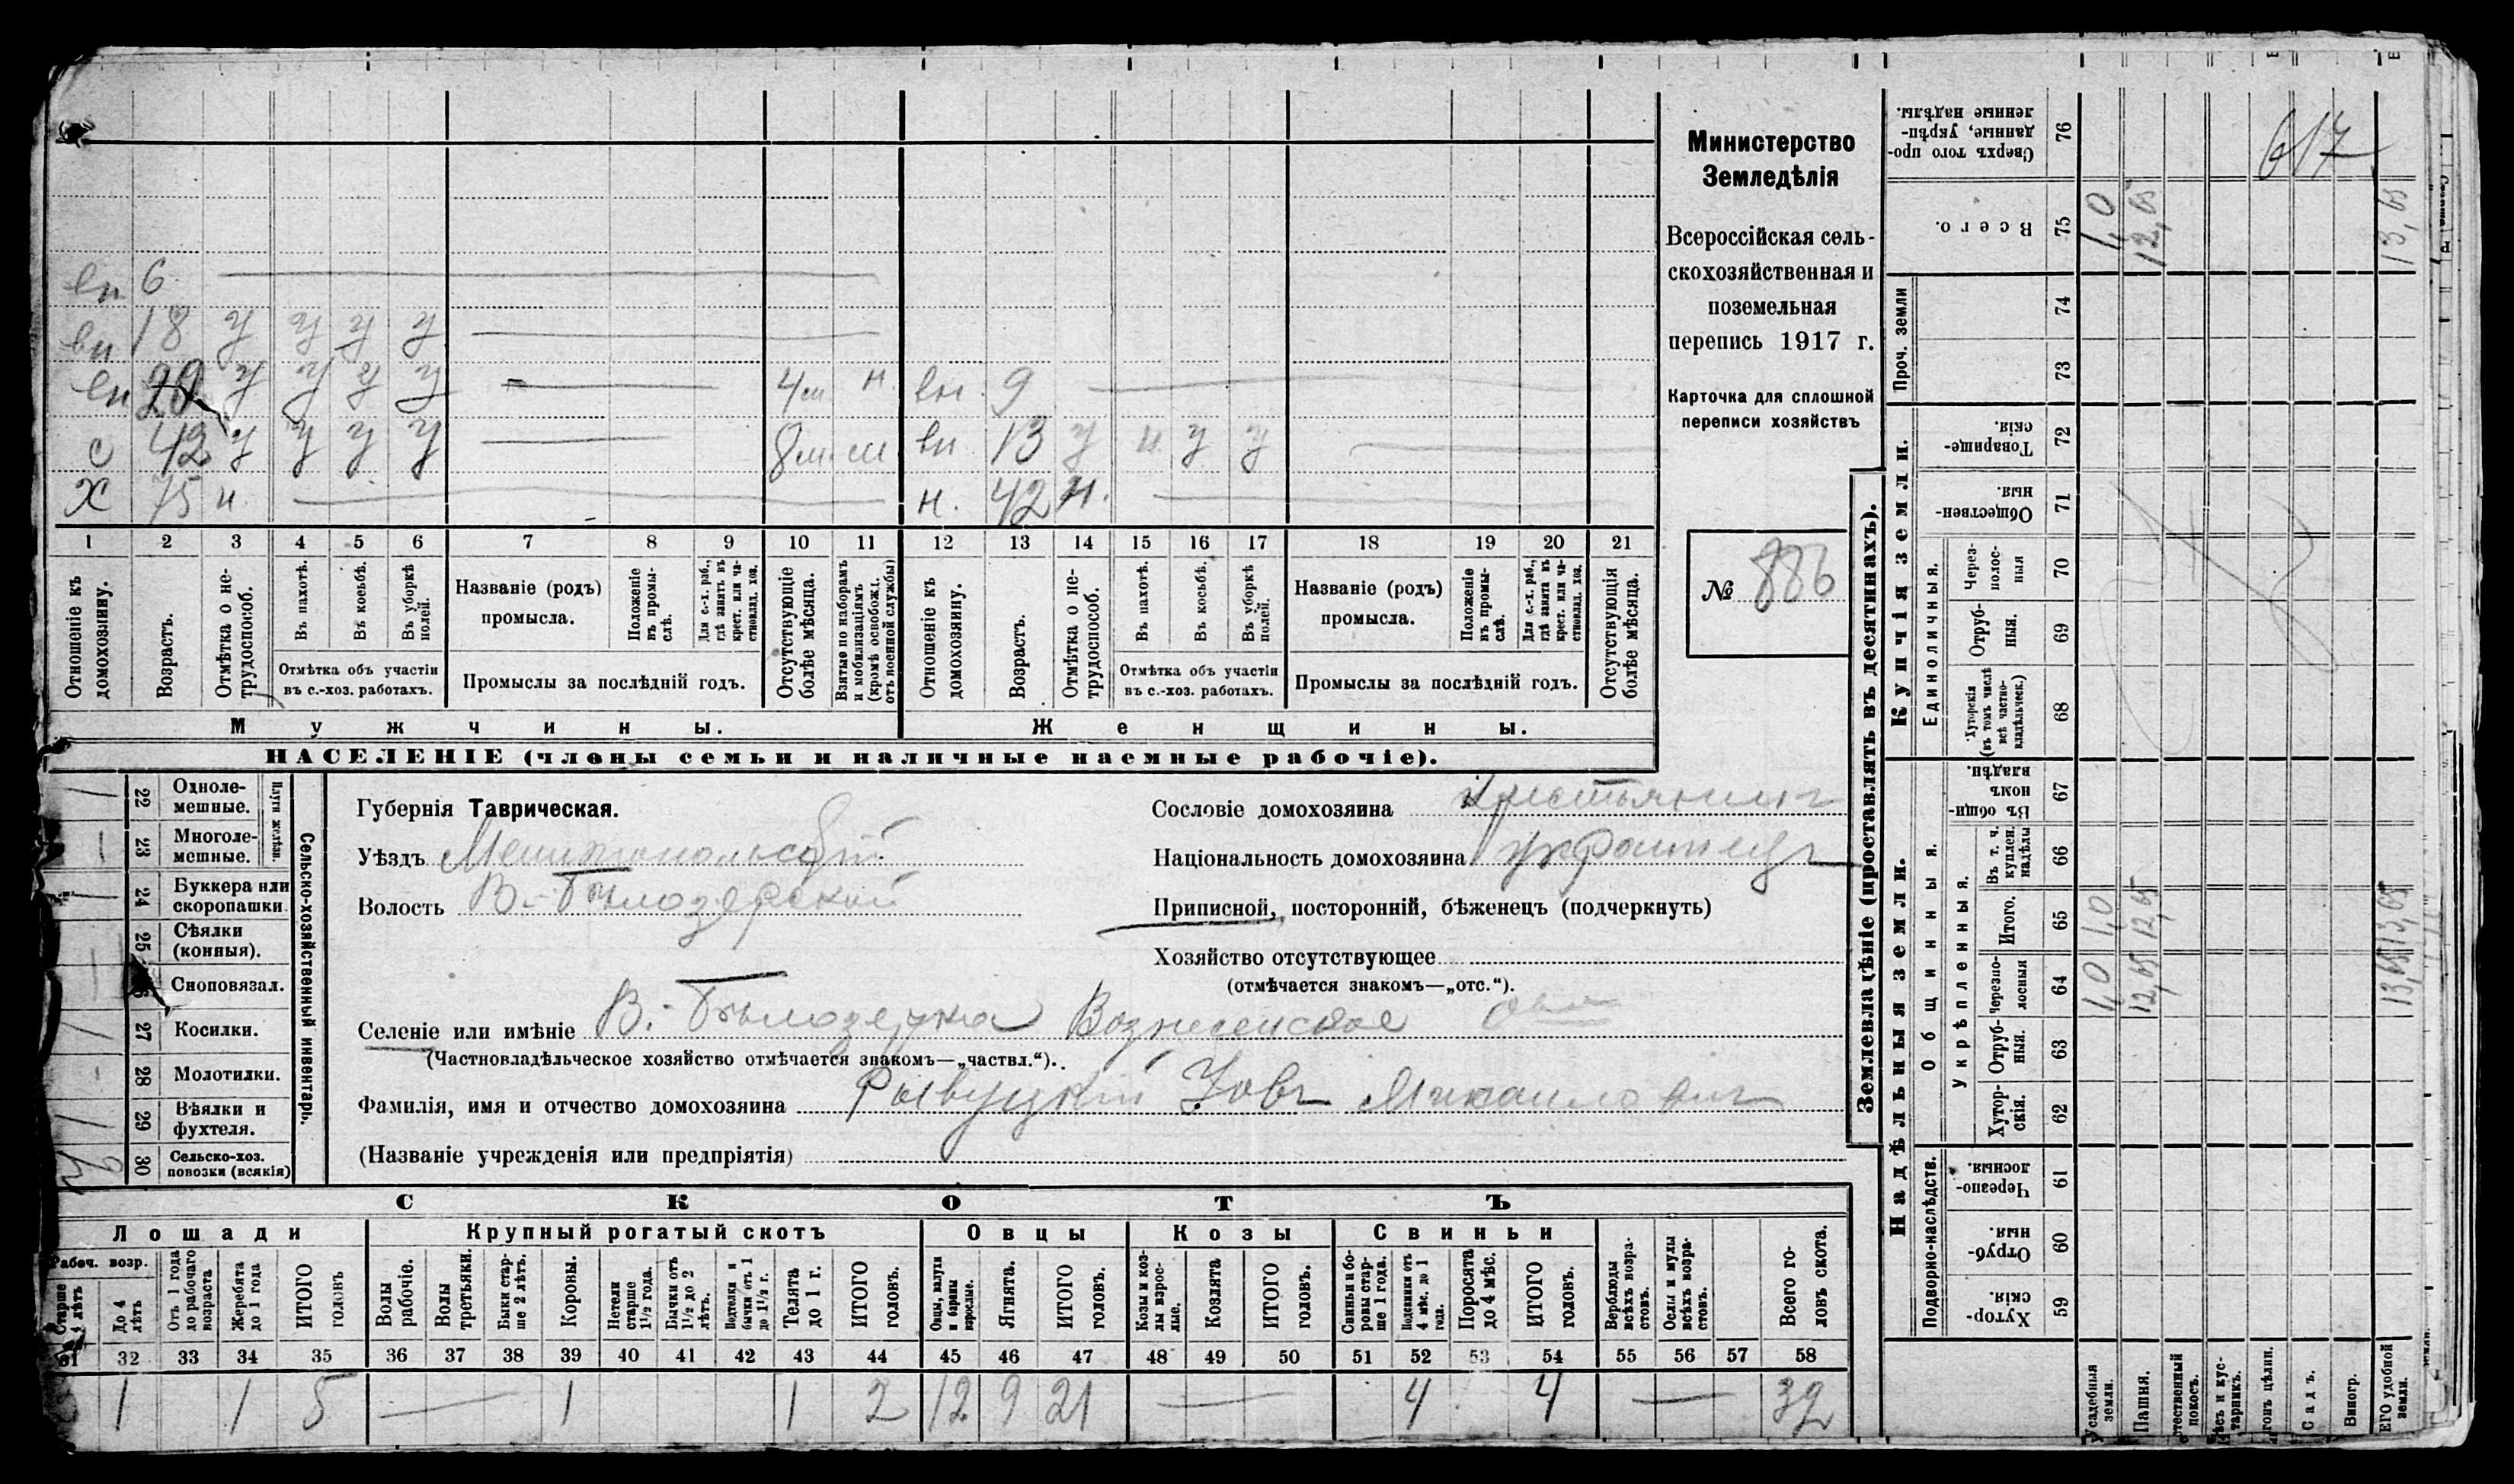 Министерство
Земледѣлія
Всероссійская сель-
скохозяйственная и
поземельная
перепись 1917 г.
Карточка для сплошной
переписи хозяйствъ
№ 886
вн 6
вн 18 у у у у
вн 29 у у у у 4 м. н. вн. 9
с 42 у у у у 8 м. м вн 13 у н у у
Х 75 н. н. 42 н.
1 2 3 4 5 6 7 8 9 10 11 12 13 14 15 16 17 18 19 20 21
Отношеніе къ домохозяину.
Возрастъ.
Отмѣтка о не-трудоспособ.
Въ пахотѣ.
Въ косьбѣ.
Въ уборкѣ полей.
Отмѣтка объ участіи
въ с.-хоз. работахъ.
Названіе (родъ)
промысла.
Положеніе въ промы-слѣ.
Для с.-х. раб., гдѣ занятъ въ крест. или ча-стновлад. хоз.
Промыслы за послѣдній годъ.
Отсутствующіе болѣе мѣсяца.
Взятые по наборамъ и мобилизаціямъ (кромѣ освобожд. отъ военной службы)
Отношеніе къ домохозяину.
Возрастъ.
Отмѣтка о не-трудоспособ.
Въ пахотѣ.
Въ косьбѣ.
Въ уборкѣ полей.
Отмѣтка объ участіи
въ с.-хоз. работахъ.
Названіе (родъ)
промысла.
Положеніе въ промы-слѣ.
Для с.-х. раб., гдѣ занята въ крест. или ча-стновлад. хоз.
Промыслы за послѣдній годъ.
Отсутствующія болѣе мѣсяца.
Мужчины. Женщины.
НАСЕЛЕНІЕ (члены семьи и наличные наемные рабочіе).
Сельско-хозяйственный инвентарь.
Плуги желѣзн.
22 Одноле-мешные. 1
23 Многоле-мешные. 1
24 Буккера или скоропашки. 1
25 Сѣялки (конныя).
Сноповязал.
27 Косилки. 1
28 Молотилки. -
29 Вѣялки и фухтеля. 1
30 Сельско-хоз. повозки (всякія)
Губернія Таврическая.
Уѣздъ Мелитопольскій
Волость В.-Бѣлозерской
Сословіе домохозяина крестьянинъ
Національность домохозяина украинецъ
Приписной, посторонній, бѣженецъ (подчеркнуть)
Хозяйство отсутствующее
(отмѣчается знакомъ—„отс.“).
Селеніе или имѣніе В.-Бѣлозерка Вознесенское
(Частновладѣльческое хозяйство отмѣчается знакомъ—„частвл.“).
Фамилія, имя и отчество домохозяина Рывуцкій Іовъ Михаиловичъ
(Названіе учрежденія или предпріятія)
СКОТЪ
Лошади Крупный рогатый скотъ Овцы Козы Свиньи
Рабоч. возр.
Старше 4 лѣтъ
До 4 лѣтъ
Отъ 1 года до рабочаго возраста
Жеребята до 1 года
ИТОГО головъ
Волы рабочіе.
Волы третьяки.
Быки стар-ше 2 лѣтъ.
Коровы.
Нетели старше 1½ года.
Бычки отъ 1½ до 2 лѣтъ.
Подтелки и бычки отъ 1 до 1½ г.
Телята до 1 г.
ИТОГО головъ.
Овцы, валухи и бараны взрослые.
Ягнята.
ИТОГО головъ.
Козы и коз-лы взрос-лые.
Козлята
ИТОГО головъ.
Свиньи и бо-ровы стар-ше 1 года.
Подсвинки отъ 4 мѣс. до 1 года.
Поросята до 4 мѣс.
ИТОГО головъ.
Верблюды всѣхъ возра-стовъ.
Ослы и мулы всѣхъ возра-стовъ.
Всего го-ловъ скота.
31 32 33 34 35 36 37 38 39 40 41 42 43 44 45 46 47 48 49 50 51 52 53 54 55 56 57 58
1 1 5 — 1 1 2 12 9 21 — 4 4 — 32
Землевладѣніе (проставлять въ десятинахъ).
617
Сверхъ того про-данные, укрѣп-ленные надѣлы. 76
Всего. 75 1,0 12,65 13,65
Проч. земли 74
73
Купчія земли.
Товарище-скія. 72
Обществен-ныя. 71
Единоличныя.
Через-полос-ныя 70
Отруб-ныя. 69
Хуторскія (въ томъ числѣ всѣ частно-владѣльческ.) 68
Надѣльныя земли.
Общинныя.
Въ общи-номъ владѣн. 67
Укрѣпленныя.
Въ т. ч. куплен. надѣлы 66
Итого. 65 1,0 12,65 13,65
Черезпо-лосныя 64 1,0 12,65 13,65
Отруб-ныя. 63
Хутор-скія. 62
Подворно-наслѣдств.
Черезпо-лосныя. 61
Отруб-ныя. 60
Хутор-скія. 59
Усадебныя земли.
Пашня.
Садъ.
Виногр.
удобной земли.